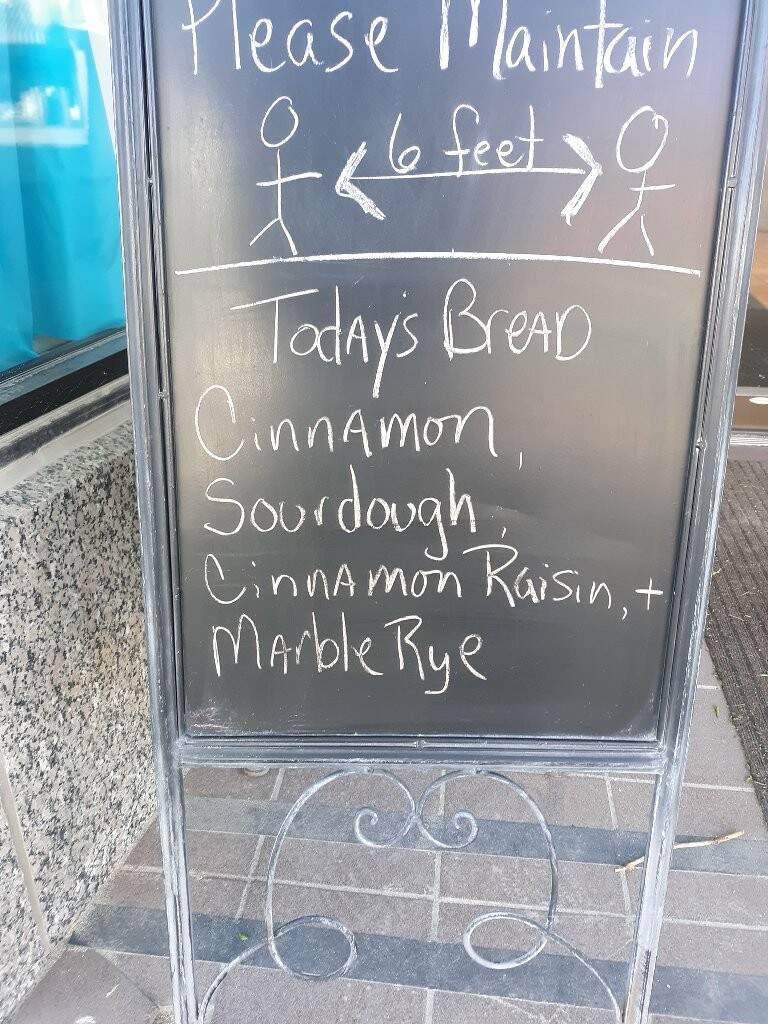 Please Maintain
6 feet
Today's Bread
Cinnamon,
Sourdough,
Cinnamon Raisin, +
Marble Rye